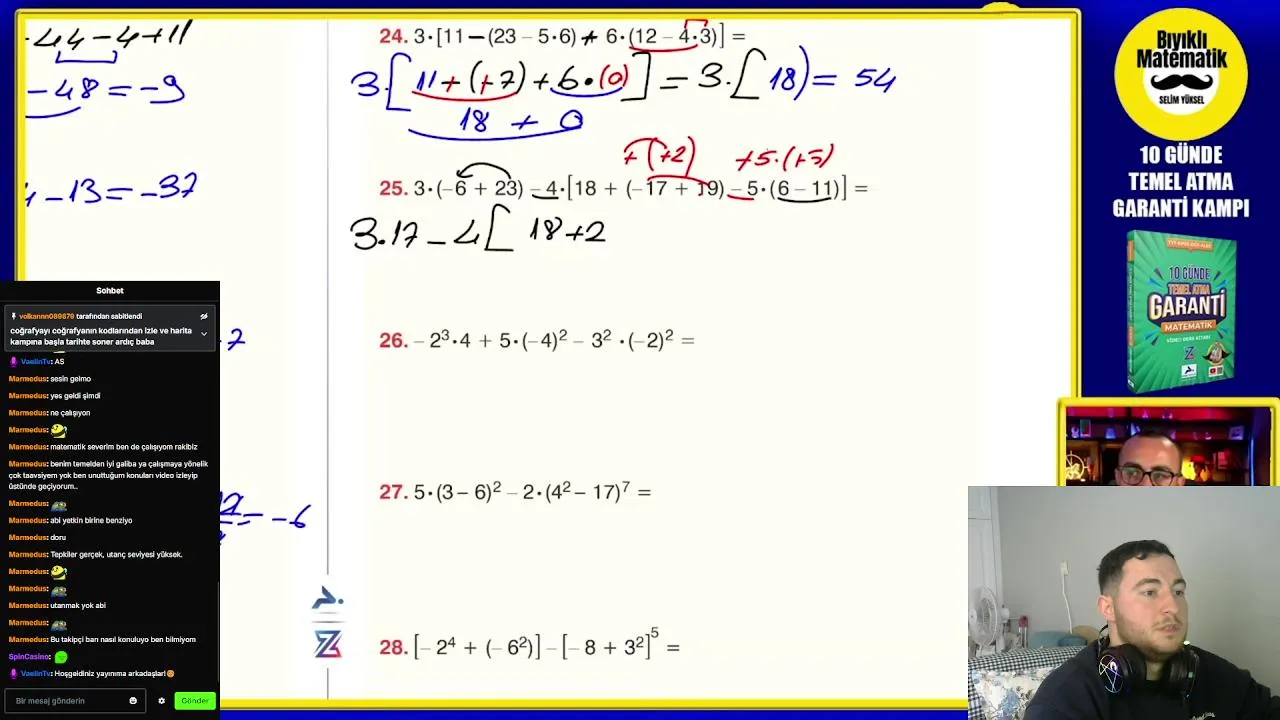 -44-4+11
-48=-9
-13=-37
24. 3·[11 −(23 − 5·6) + 6·(12 − 4·3)] =
3[11+(+7)+6·(0)]=3·[18)= 54
18 + 0
+(+2) +5·(+5)
25. 3·(−6 + 23) −4·[18 + (−17 + 19) −5·(6 − 11)] =
3.17-4[ 18+2
26. − 2³·4 + 5·(−4)² − 3² ·(−2)² =
27. 5·(3 − 6)² − 2·(4² − 17)⁷ =
=-6
28. [− 2⁴ + (− 6²)] − [− 8 + 3²]⁵ =
Bıyıklı
Matematik
SELİM YÜKSEL
10 GÜNDE
TEMEL ATMA
GARANTİ KAMPI
10 GÜNDE
TEMEL ATMA
GARANTİ
MATEMATİK
VİDEO DERS KİTABI
Sohbet
volkannn089879 tarafından sabitlendi
coğrafyayı coğrafyanın kodlarından izle ve harita
kampına başla tarihte soner ardıç baba
VaelinTv: AS
Marmedus: sesin gelmo
Marmedus: yes geldi şimdi
Marmedus: ne çalışıyon
Marmedus:
Marmedus: matematik severim ben de çalışıyom rakibiz
Marmedus: benim temelden iyi galiba ya çalışmaya yönelik
çok taavsiyem yok ben unuttuğum konuları video izleyip
üstünde geçiyorum..
Marmedus:
Marmedus: abi yetkin birine benziyo
Marmedus: doru
Marmedus: Tepkiler gerçek, utanç seviyesi yüksek.
Marmedus:
Marmedus:
Marmedus: utanmak yok abi
Marmedus:
Marmedus: Bu takipçi barı nasıl konuluyo ben bilmiyom
SpinCasino:
VaelinTv: Hoşgeldiniz yayınıma arkadaşlar!
Bir mesaj gönderin
Gönder